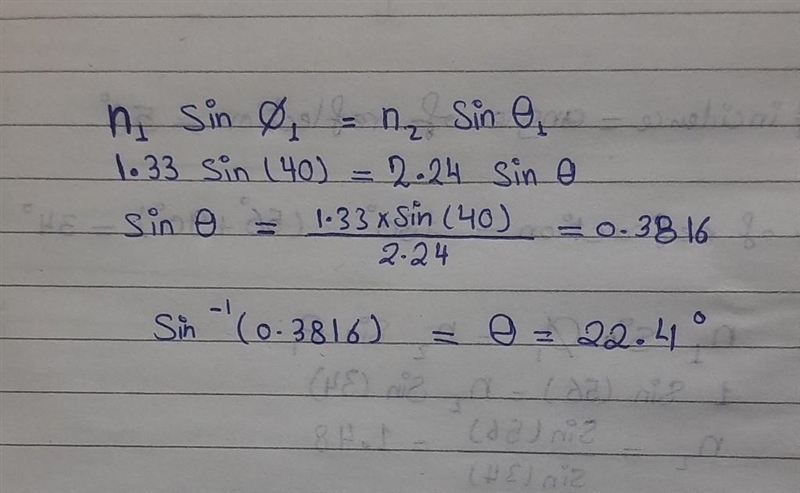 n₁ Sin Ø₁ = n₂ Sin θ₁
1.33 Sin (40) = 2.24 Sin θ
Sin θ = 1.33 x Sin (40) / 2.24 = 0.3816
Sin⁻¹ (0.3816) = θ = 22.4°